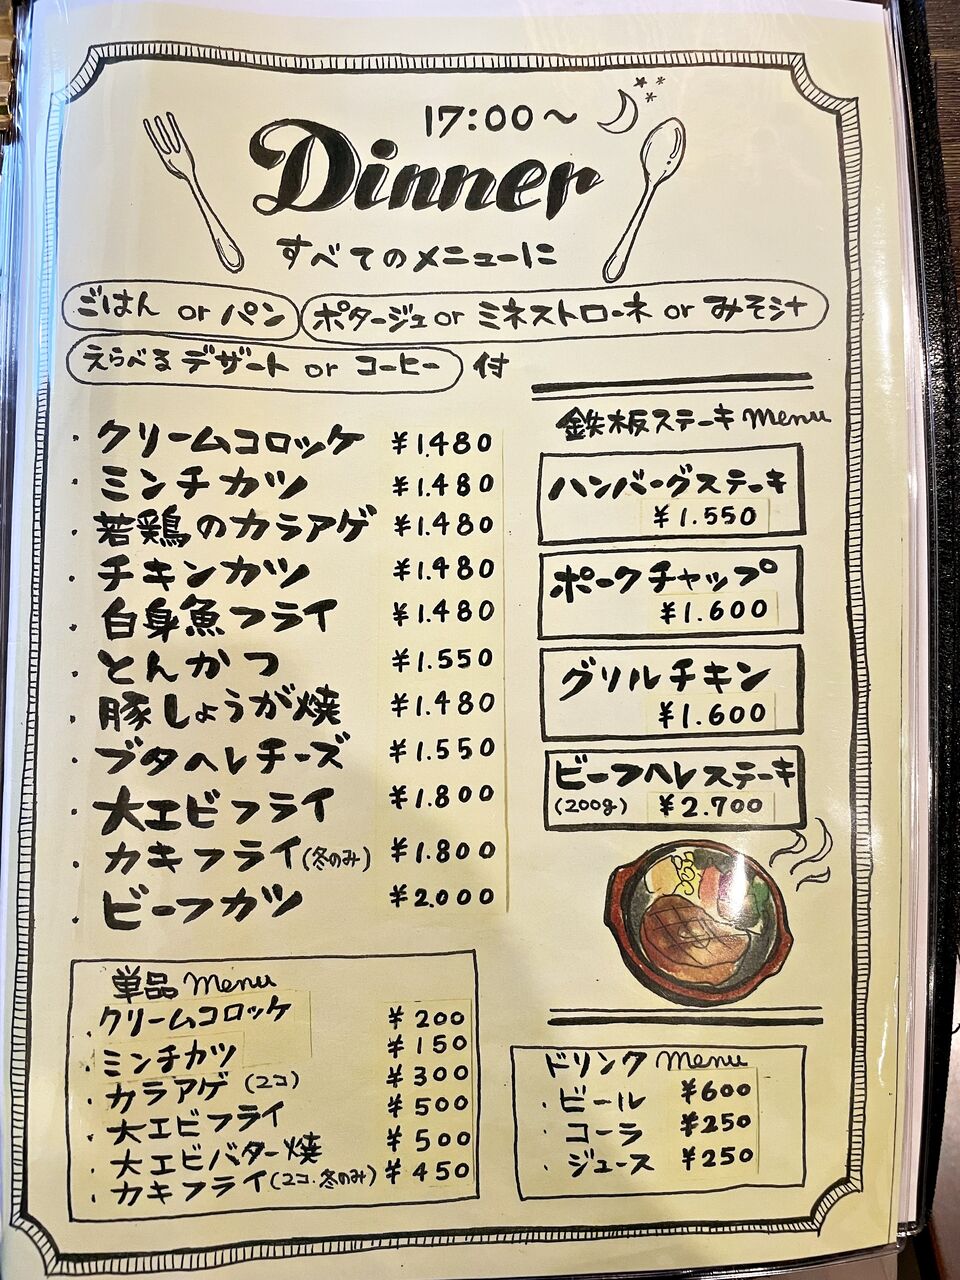 17:00〜
Dinner
すべてのメニューに
ごはん or パン ポタージュor ミネストローネ or みそ汁
えらべるデザート or コーヒー 付
・クリームコロッケ ¥1.480
・ミンチカツ ¥1.480
・若鶏のカラアゲ ¥1.480
・チキンカツ ¥1.480
・白身魚フライ ¥1.480
・とんかつ ¥1.550
・豚しょうが焼 ¥1.480
・ブタヘレチーズ ¥1.550
・大エビフライ ¥1.800
・カキフライ(冬のみ) ¥1.800
・ビーフカツ ¥2.000
鉄板ステーキ menu
ハンバーグステーキ
¥1.550
ポークチャップ
¥1.600
グリルチキン
¥1.600
ビーフヘレステーキ
(200g) ¥2.700
単品 menu
・クリームコロッケ ¥200
・ミンチカツ ¥150
・カラアゲ (2コ) ¥300
・大エビフライ ¥500
・大エビバター焼 ¥500
・カキフライ(2コ.冬のみ) ¥450
ドリンク menu
・ビール ¥600
・コーラ ¥250
・ジュース ¥250